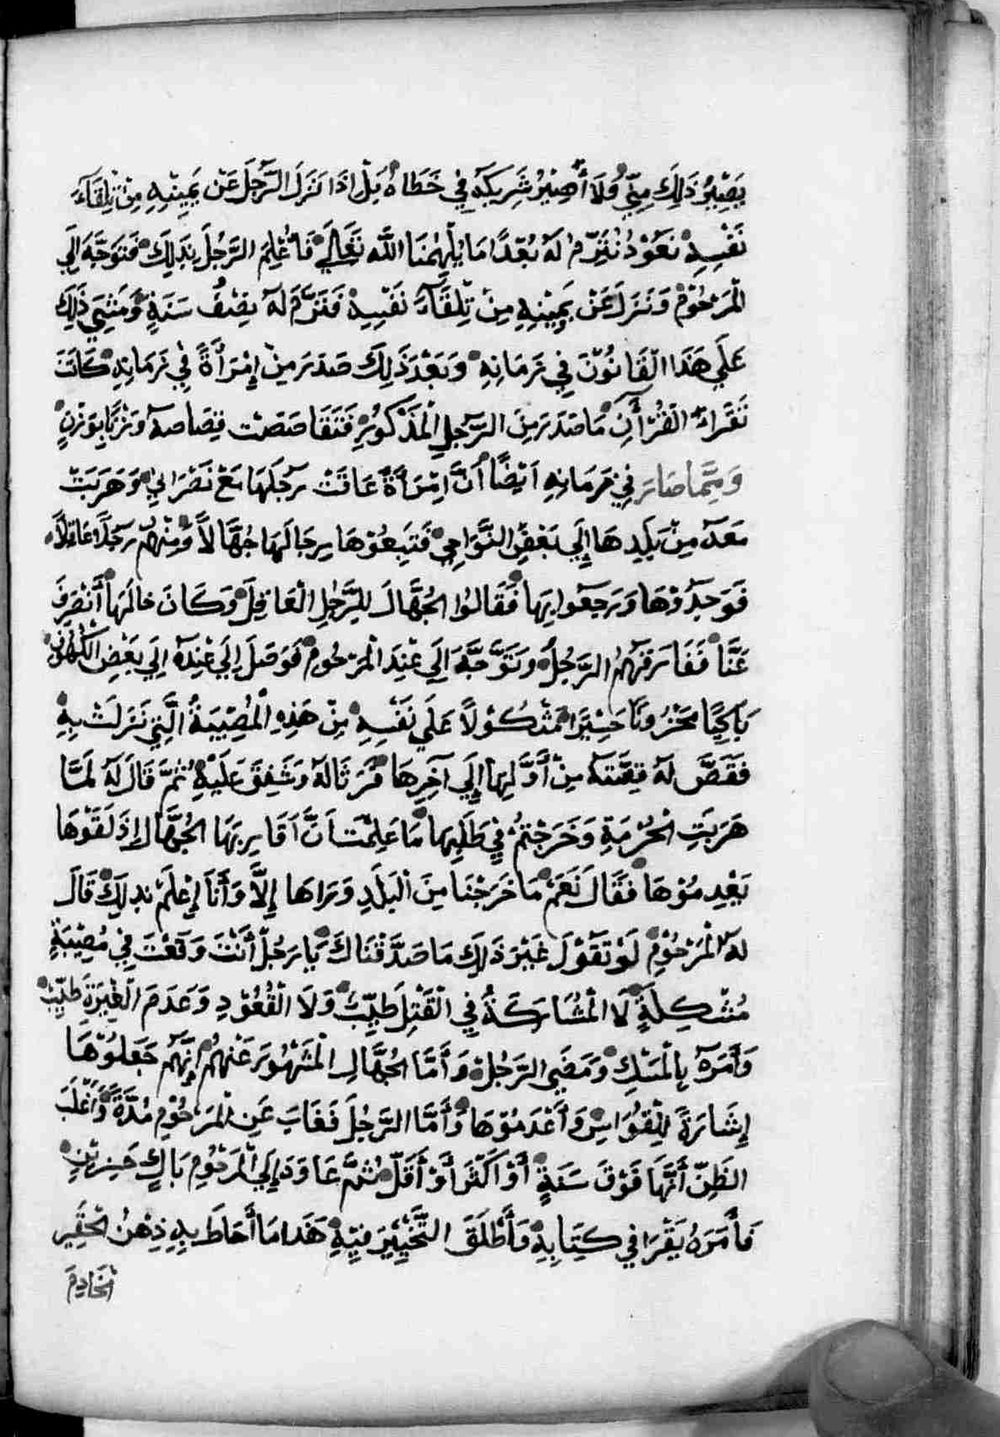 يَصِيْرُ ذَلِكَ مِنِّي وَلَا أَصِيْرُ شَرِيكَهُ فِي خَطَاهُ بَلْ اِذَا نَزَلَ الرَّجُلَ عَنْ يَمِيْنِهِ مِنْ تِلْقَآءَ
نَفْسِهِ نَعُوْدُ نُقَدِّمُ لَهُ بُعْدًا مَا يُلْهِمُنَا اللَّه تَعَالَي فَاُعْلِمَ الرَّجُلَ بِذَلِكَ فَتَوَجَّهَ اِلَي
الْمَرْحُوْمِ وَنَزَلَ عَنْ يَمِيْنِهِ مِنْ تِلْقَآءَ نَفْسِهِ فَقَدَّمَ لَهُ نِصْفُ سَنَةٍ وَمَشِيَ ذَلِكَ
عَلَي هَذَا الْقَانُوْنَ فِي زَمَانِهِ وَبَعْدَ ذَلِكَ صَدَرَ مِنْ اِمْرَأَةً فِي زَمَانِهِ كَانَتْ
تَقْرَاء الْقُرْأَنِ مَا صَدَرَ مِنَ الرَّجُلِ الْمَذْكُوْرِ فَتَقَاصَصَتْ قِصَاصَهُ وَزْنًا بِوَزْنٍ
وَمِمَّا صَارَ فِي زَمَانِهِ اَيْضًا اَنَّ اِمْرَأَةً عَافَتْ رَجُلَهَا مَعْ نَصْرَانِي وَهَرَبَتْ
مَعَهُ مِنْ بَلَدِهَا اِلَي بَعْضِ النَّوَاحِي فَتَبِعُوْهَا رِجَالَهَا جُهَّالاً وَمِنْهُمْ رَجُلاً عَاقِلاً
فَوَجَدُوْهَا وَرَجَعُوا بِهَا فَقَالُوا الجُهَّالَ لِلرَّجُلِ الْعَاقِلَ وَكَانَ خَالُهَا أَنْصَرِفَ
عَنَّا فَفَارَقَهُمْ الرَّجُلَ وَتَوَجَّهَ اِلَي عِنْدِ الْمَرْحُومْ فَوَصَلَ اِلَي عِنْدَهُ اِلَي بَعْضِ الْكُهُوْفِ
بَاكِيًا مَحْزُوْنًا حَسِيْرًا مَثْكُوْلاً عَلَي نَفْسِهِ مِنْ هَذِهِ الْمُصِيْبَةُ الَّتِي نَزَلَتْ بِهِ
فَقَصَّ لَهُ قِصَّتَهُ مِنْ أَوَّلِهَا اِلَي آخِرِهَا فَرَثَا لَهُ وَشَفِقَ عَلَيْهِ ثُمَّ قَالَ لَهُ لَمَّا
هَرَبَتِ الْحُرْمَةِ وَخَرَجْتُمْ فِي طَلَبِهَا مَا عَلِمْتَ اَنَّ اَقَارِبَهَا الجُهَّال اِذْ لَقَوْهَا
يَعْدِمُوْهَا فَقَالَ نَعَمْ مَا خَرَجْنَا مِنَ الْبَلَدِ وَرَاهَا إِلاَّ وَأَنَا لِيْ عِلْمٌ بِذَلِكَ قَالَ
لَهُ الْمَرْحُوْمِ لَوْ تَقُوْلَ غَيْرَ ذَلِكَ مَا صَدَّقْنَاكَ يَا رَجُلْ أَنْتَ وَقَعْتَ فِي مُصِيْبَةٍ
مُشْكِلَةٍ لَا الْمُشَارَكَةُ فِي الْقَتِلَ طَيِّبْ وَلَا الْقُعُوْدِ وَعَدَمَ الْغِيْرَةَ طَيِّبْ
وَأَمَرَهُ بِالْمَسْكِ وَمَضَي الرَّجُلْ وَأَمَّا الجُهَّالِ الْمَشْهُورَ عَنْهُمْ اِنَّهُم جَعَلُوْهَا
إِشَارَةً لِلْقُوَاسِ وَأَعْدَمُوْهَا وَأَمَّا الرَّجُلَ فَغَابَ عَنِ الْمَرْحُوْمِ مُدَّةً وَأَغْلَبَ
الظَّنِّ أَنَّهَا فَوْقَ سَنَةٍ أَوْ أَكْثَرَ أَوْ أَقَلّ ثُمَّ عَاوَدَ إِلَي الْمَرْحُوْمِ بَاكٍ حَزِيْنٍ
فَأَمَرَهُ يَقْرَا فِي كِتَابِهِ وَأَطْلَقَ التَّخْيِيْرَ فِيْهِ هَذَا مَا أَحَاطَ بِهِ ذِهْنُ الْحَقِيْر
الْخَادِمَ